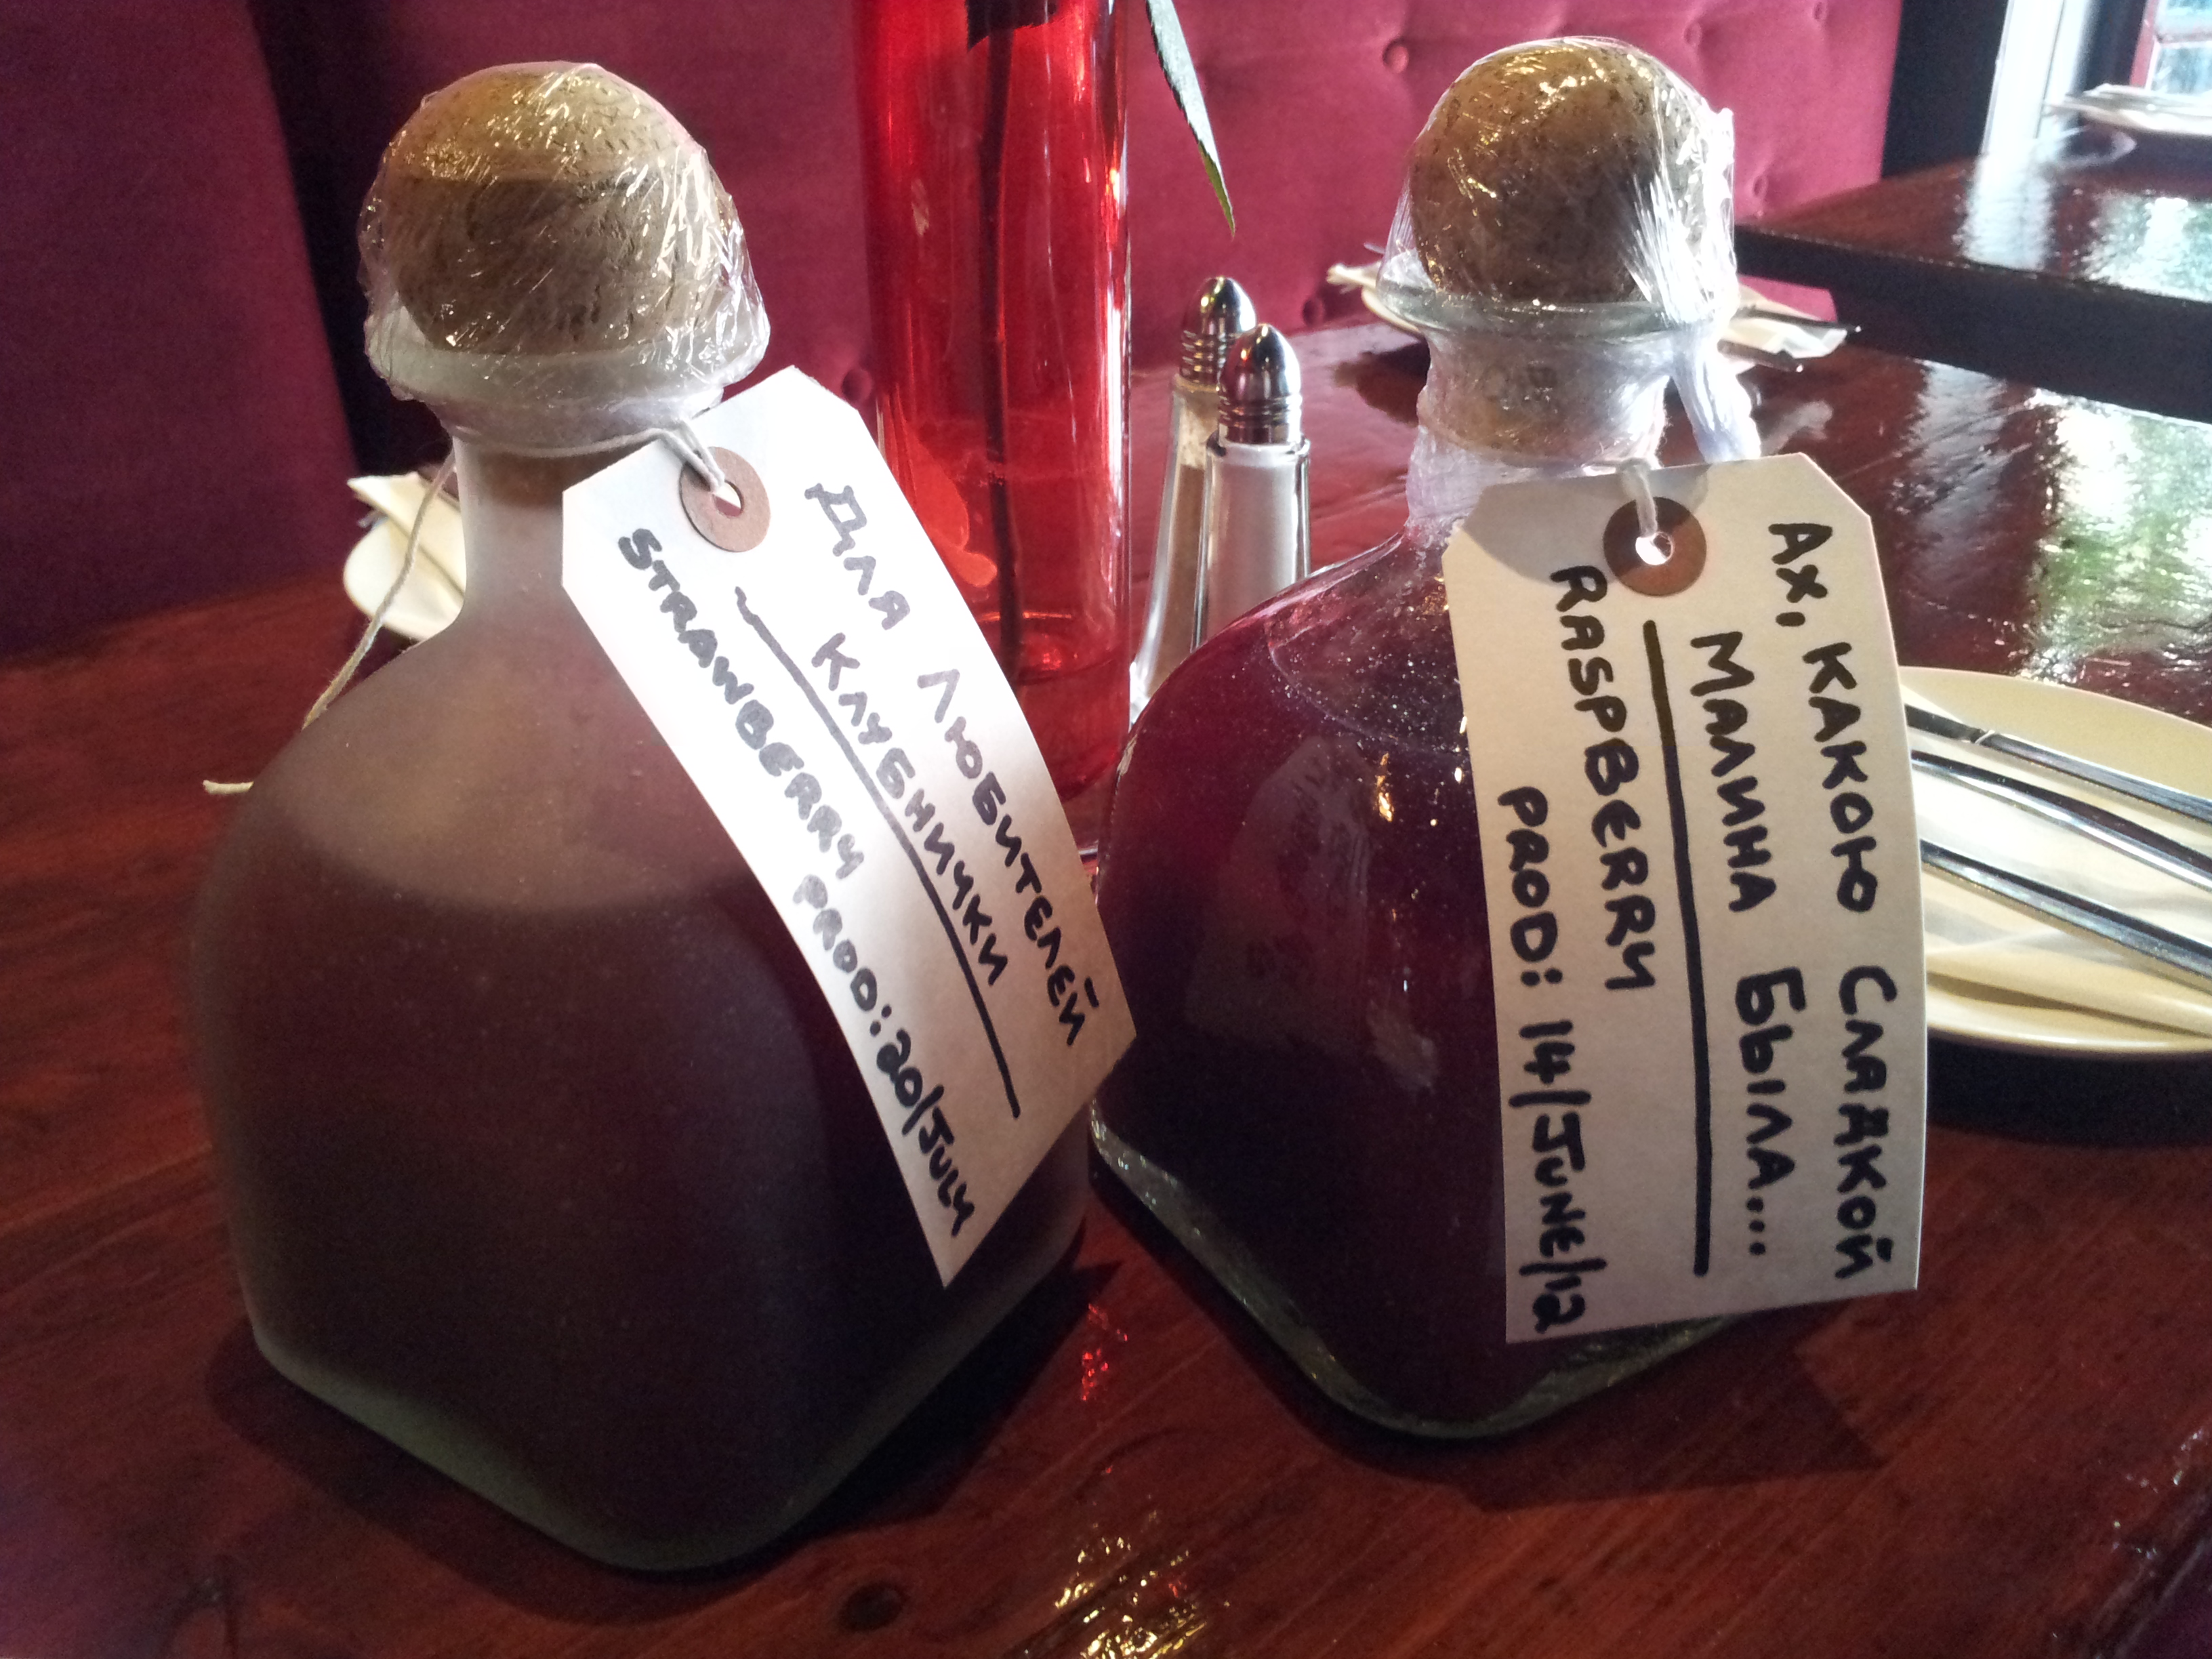 Для Любителей
Клубнички
STRAWBERRY PROD: 20/JULY
Ах, какою Сладкой
Малина Была...
RASPBERRY
PROD: 14/JUNE/12